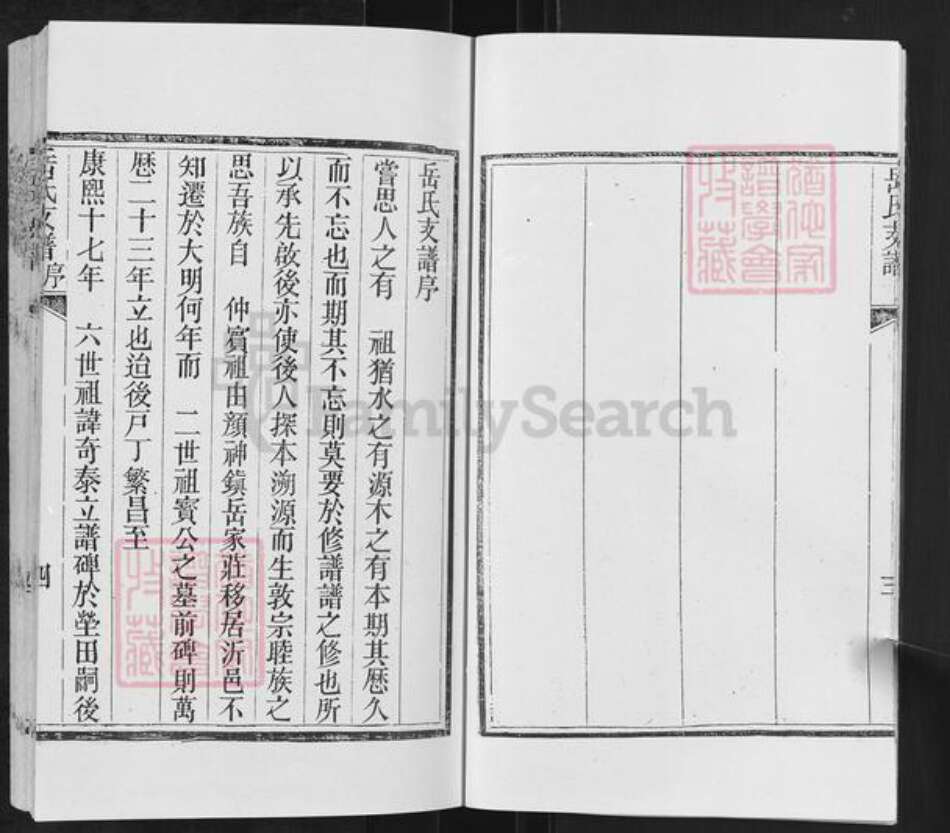 岳氏支譜
三
岳氏支譜序
嘗思人之有　祖猶水之有源木之有本期其歷久
而不忘也而期其不忘則莫要於修譜譜之修也所
以承先啟後亦使後人探本溯源而生敦宗睦族之
思吾族自　仲賓祖由顏神鎮岳家莊移居沂邑不
知遷於大明何年而　二世祖賓公之墓前碑則萬
歷二十三年立也迨後戸丁繁昌至
康熙十七年　六世祖諱奇泰立譜碑於塋田嗣後
岳氏支譜序
四
譜學會
收藏
FamilySearch